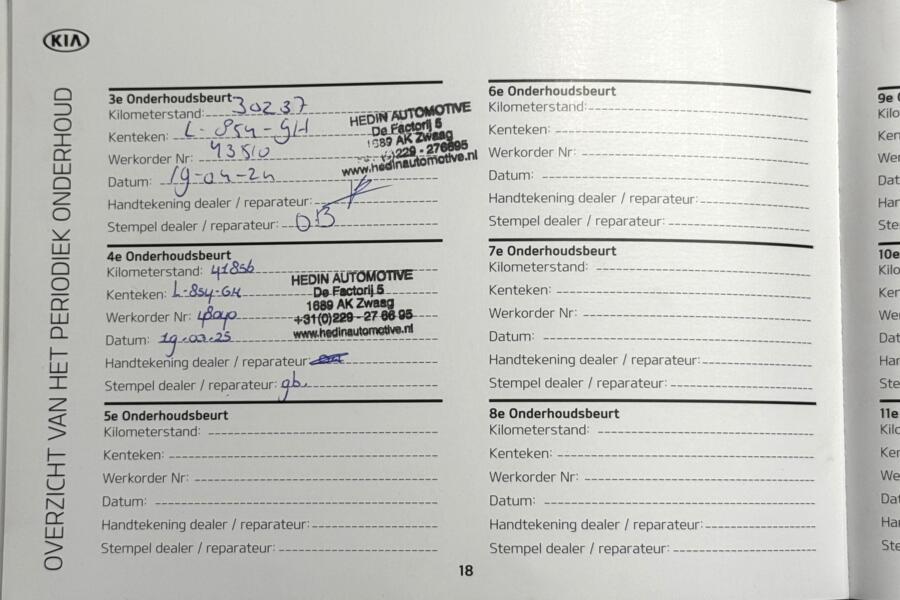 KIA
OVERZICHT VAN HET PERIODIEK ONDERHOUD
3e Onderhoudsbeurt
Kilometerstand: 30237
Kenteken: L-854-GH
Werkorder Nr: 43510
Datum: 19-04-24
Handtekening dealer / reparateur:
Stempel dealer / reparateur: OB
HEDIN AUTOMOTIVE
De Factorij 5
1689 AK Zwaag
(0)229 - 276695
www.hedinautomotive.nl
4e Onderhoudsbeurt
Kilometerstand: 41856
Kenteken: L-854-GH
Werkorder Nr:
Datum:
Handtekening dealer / reparateur:
Stempel dealer / reparateur: gb.
HEDIN AUTOMOTIVE
De Factorij 5
1689 AK Zwaag
+31(0)229 - 27 66 95
www.hedinautomotive.nl
5e Onderhoudsbeurt
Kilometerstand:
Kenteken:
Werkorder Nr:
Datum:
Handtekening dealer / reparateur:
Stempel dealer / reparateur:
6e Onderhoudsbeurt
Kilometerstand:
Kenteken:
Werkorder Nr:
Datum:
Handtekening dealer / reparateur:
Stempel dealer / reparateur:
7e Onderhoudsbeurt
Kilometerstand:
Kenteken:
Werkorder Nr:
Datum:
Handtekening dealer / reparateur:
Stempel dealer / reparateur:
8e Onderhoudsbeurt
Kilometerstand:
Kenteken:
Werkorder Nr:
Datum:
Handtekening dealer / reparateur:
Stempel dealer / reparateur:
18
9e
10e
11e